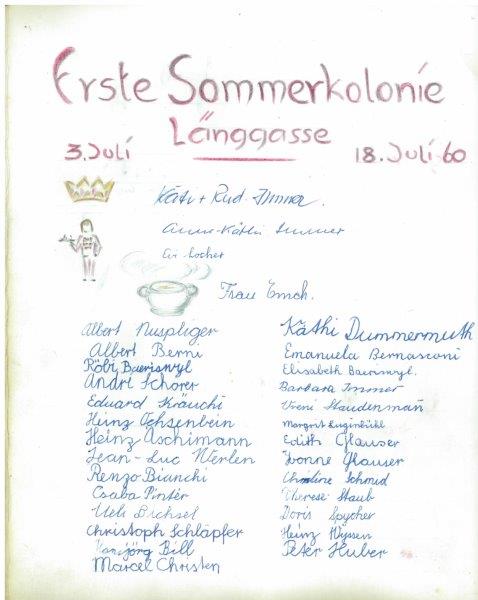 Erste Sommerkolonie
Länggasse
3. Juli 18. Juli 60
Käthi + Rud. Immer.
Anne-Käthi Immer
Locher
Frau Emch.
Albert Nuspliger
Albert Berni
Röbi Baeriswyl
André Schorer
Eduard Kräuchi
Heinz Ochsenbein
Heinz Aschimann
Jean-Luc Werlen
Renzo Bianchi
Csaba Pintér
Ueli Bichsel
Christoph Schläpfer
Hansjörg Bill
Marcel Christen
Käthi Dummermuth
Emanuela Bernasconi
Elisabeth Baeriswyl.
Barbara Immer
Vreni Staudenmañ
Margrit Luginbühl
Edith Glauser
Yvonne Glauser
Christine Schmid
Therese Staub
Doris Spycher
Heinz Wyssen
Peter Huber